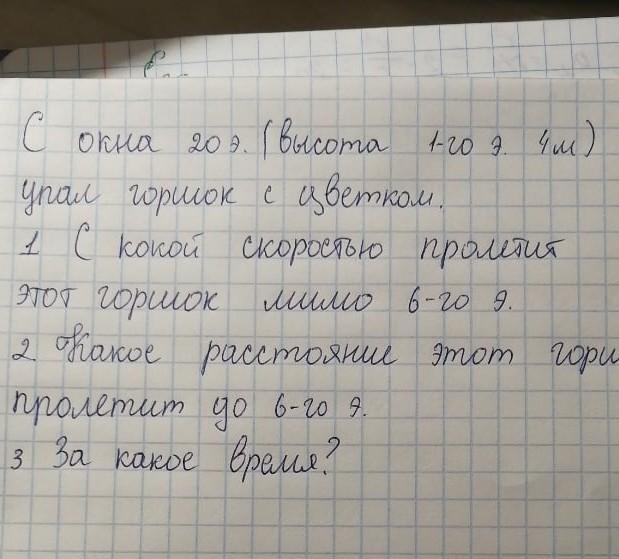 С окна 20 э. (высота 1-го э. 4м)
упал горшок с цветком.
1 С кокой скоростью пролетит
этот горшок мимо 6-го э.
2. Какое расстояние этот горш
пролетит до 6-го э.
3 За какое время?